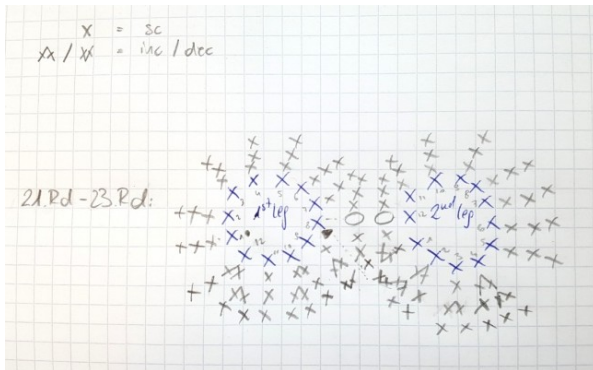 x = sc
/ = inc / dec
21.Rd - 23.Rd:
1st leg
2nd leg